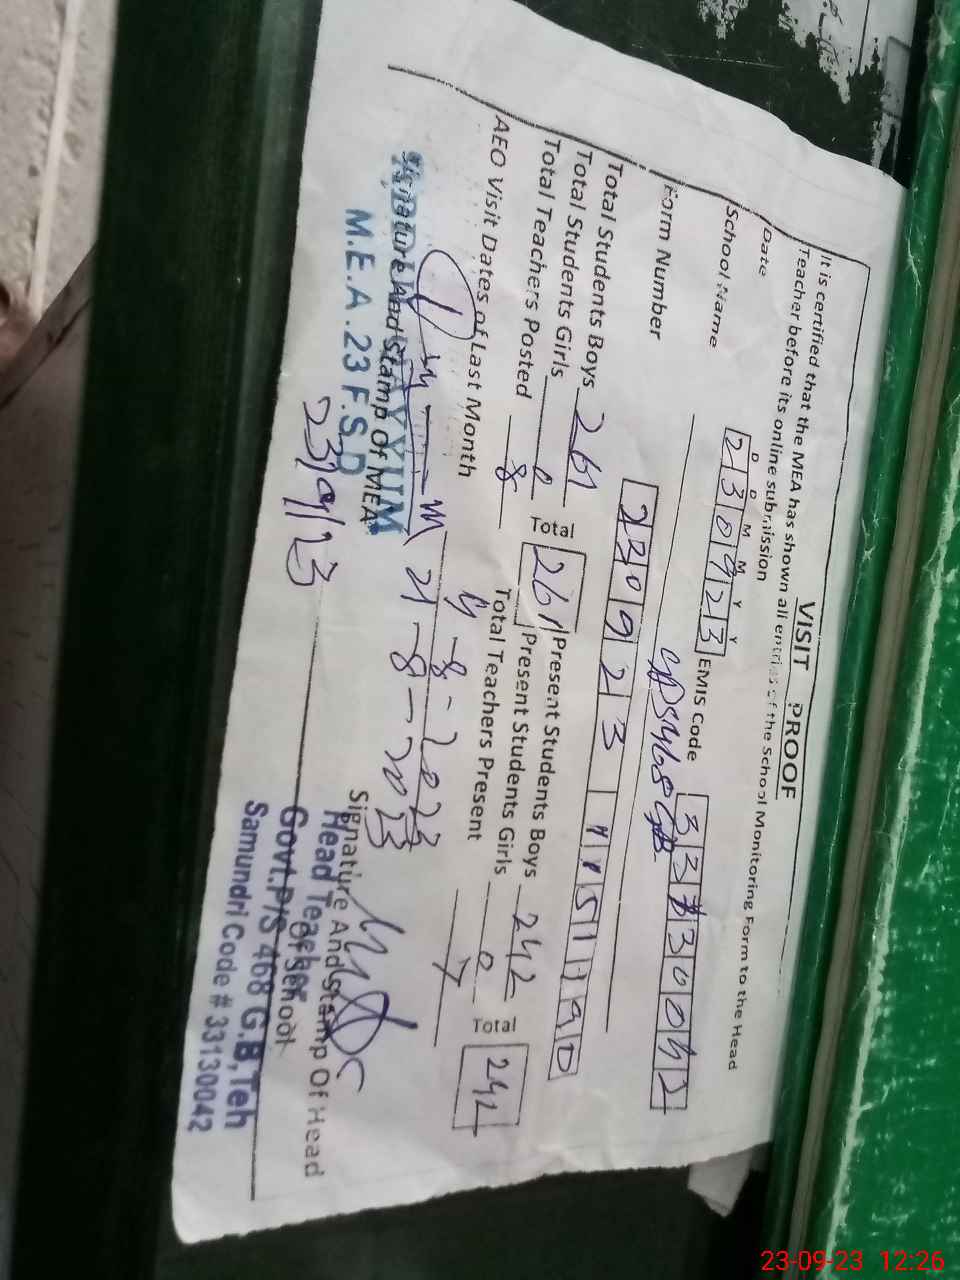 VISIT PROOF
It is certified that the MEA has shown all entries of the School Monitoring Form to the Head
Teacher before its online submission
D D M M Y Y
Date 230923 EMIS Code 33130042
School Name GPS 468 GB
Form Number 230923
Total Students Boys 261 Total 261 Present Students Boys 242 Total 242
Total Students Girls 0 Present Students Girls 0
Total Teachers Posted 8 Total Teachers Present 7
AEO Visit Dates of Last Month 4-8-2023
21-8-2023
Signature And Stamp Of MEA
M.E.A.23 F.S.D
23/9/23
Signature And Stamp Of Head
Of School
Head Teacher
Govt.P/S 468 G.B,Teh
Samundri Code # 33130042
23-09-23 12:26